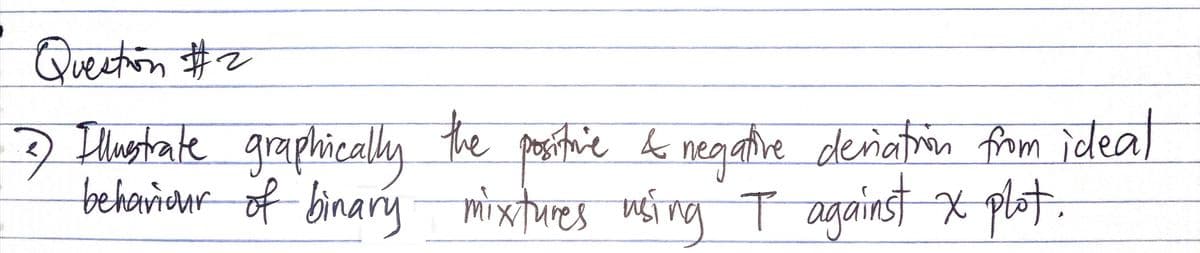 Question #2
2) Illustrate graphically the positive & negative deviation from ideal
behaviour of binary mixtures using T against x plot.